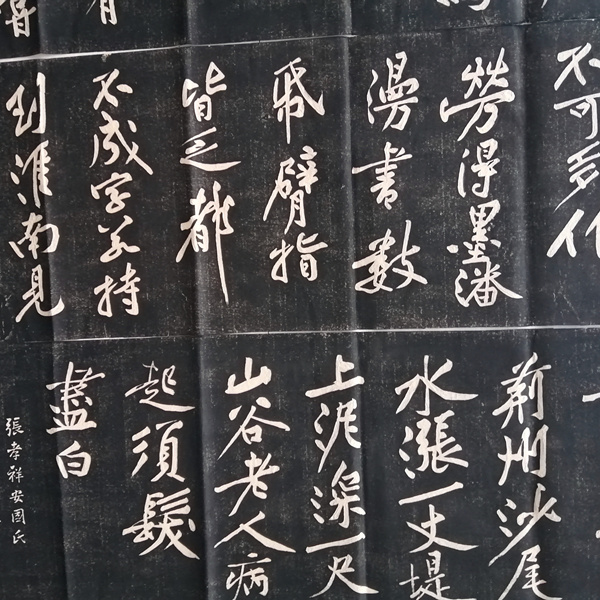 不可多作
勞得墨潘
漫書數
紙臂指
皆乏都
不成字若持
到淮南見
荊州沙尾
水漲一丈堤
上泥深一尺
山谷老人病
起須髮
盡白
張孝祥安國氏